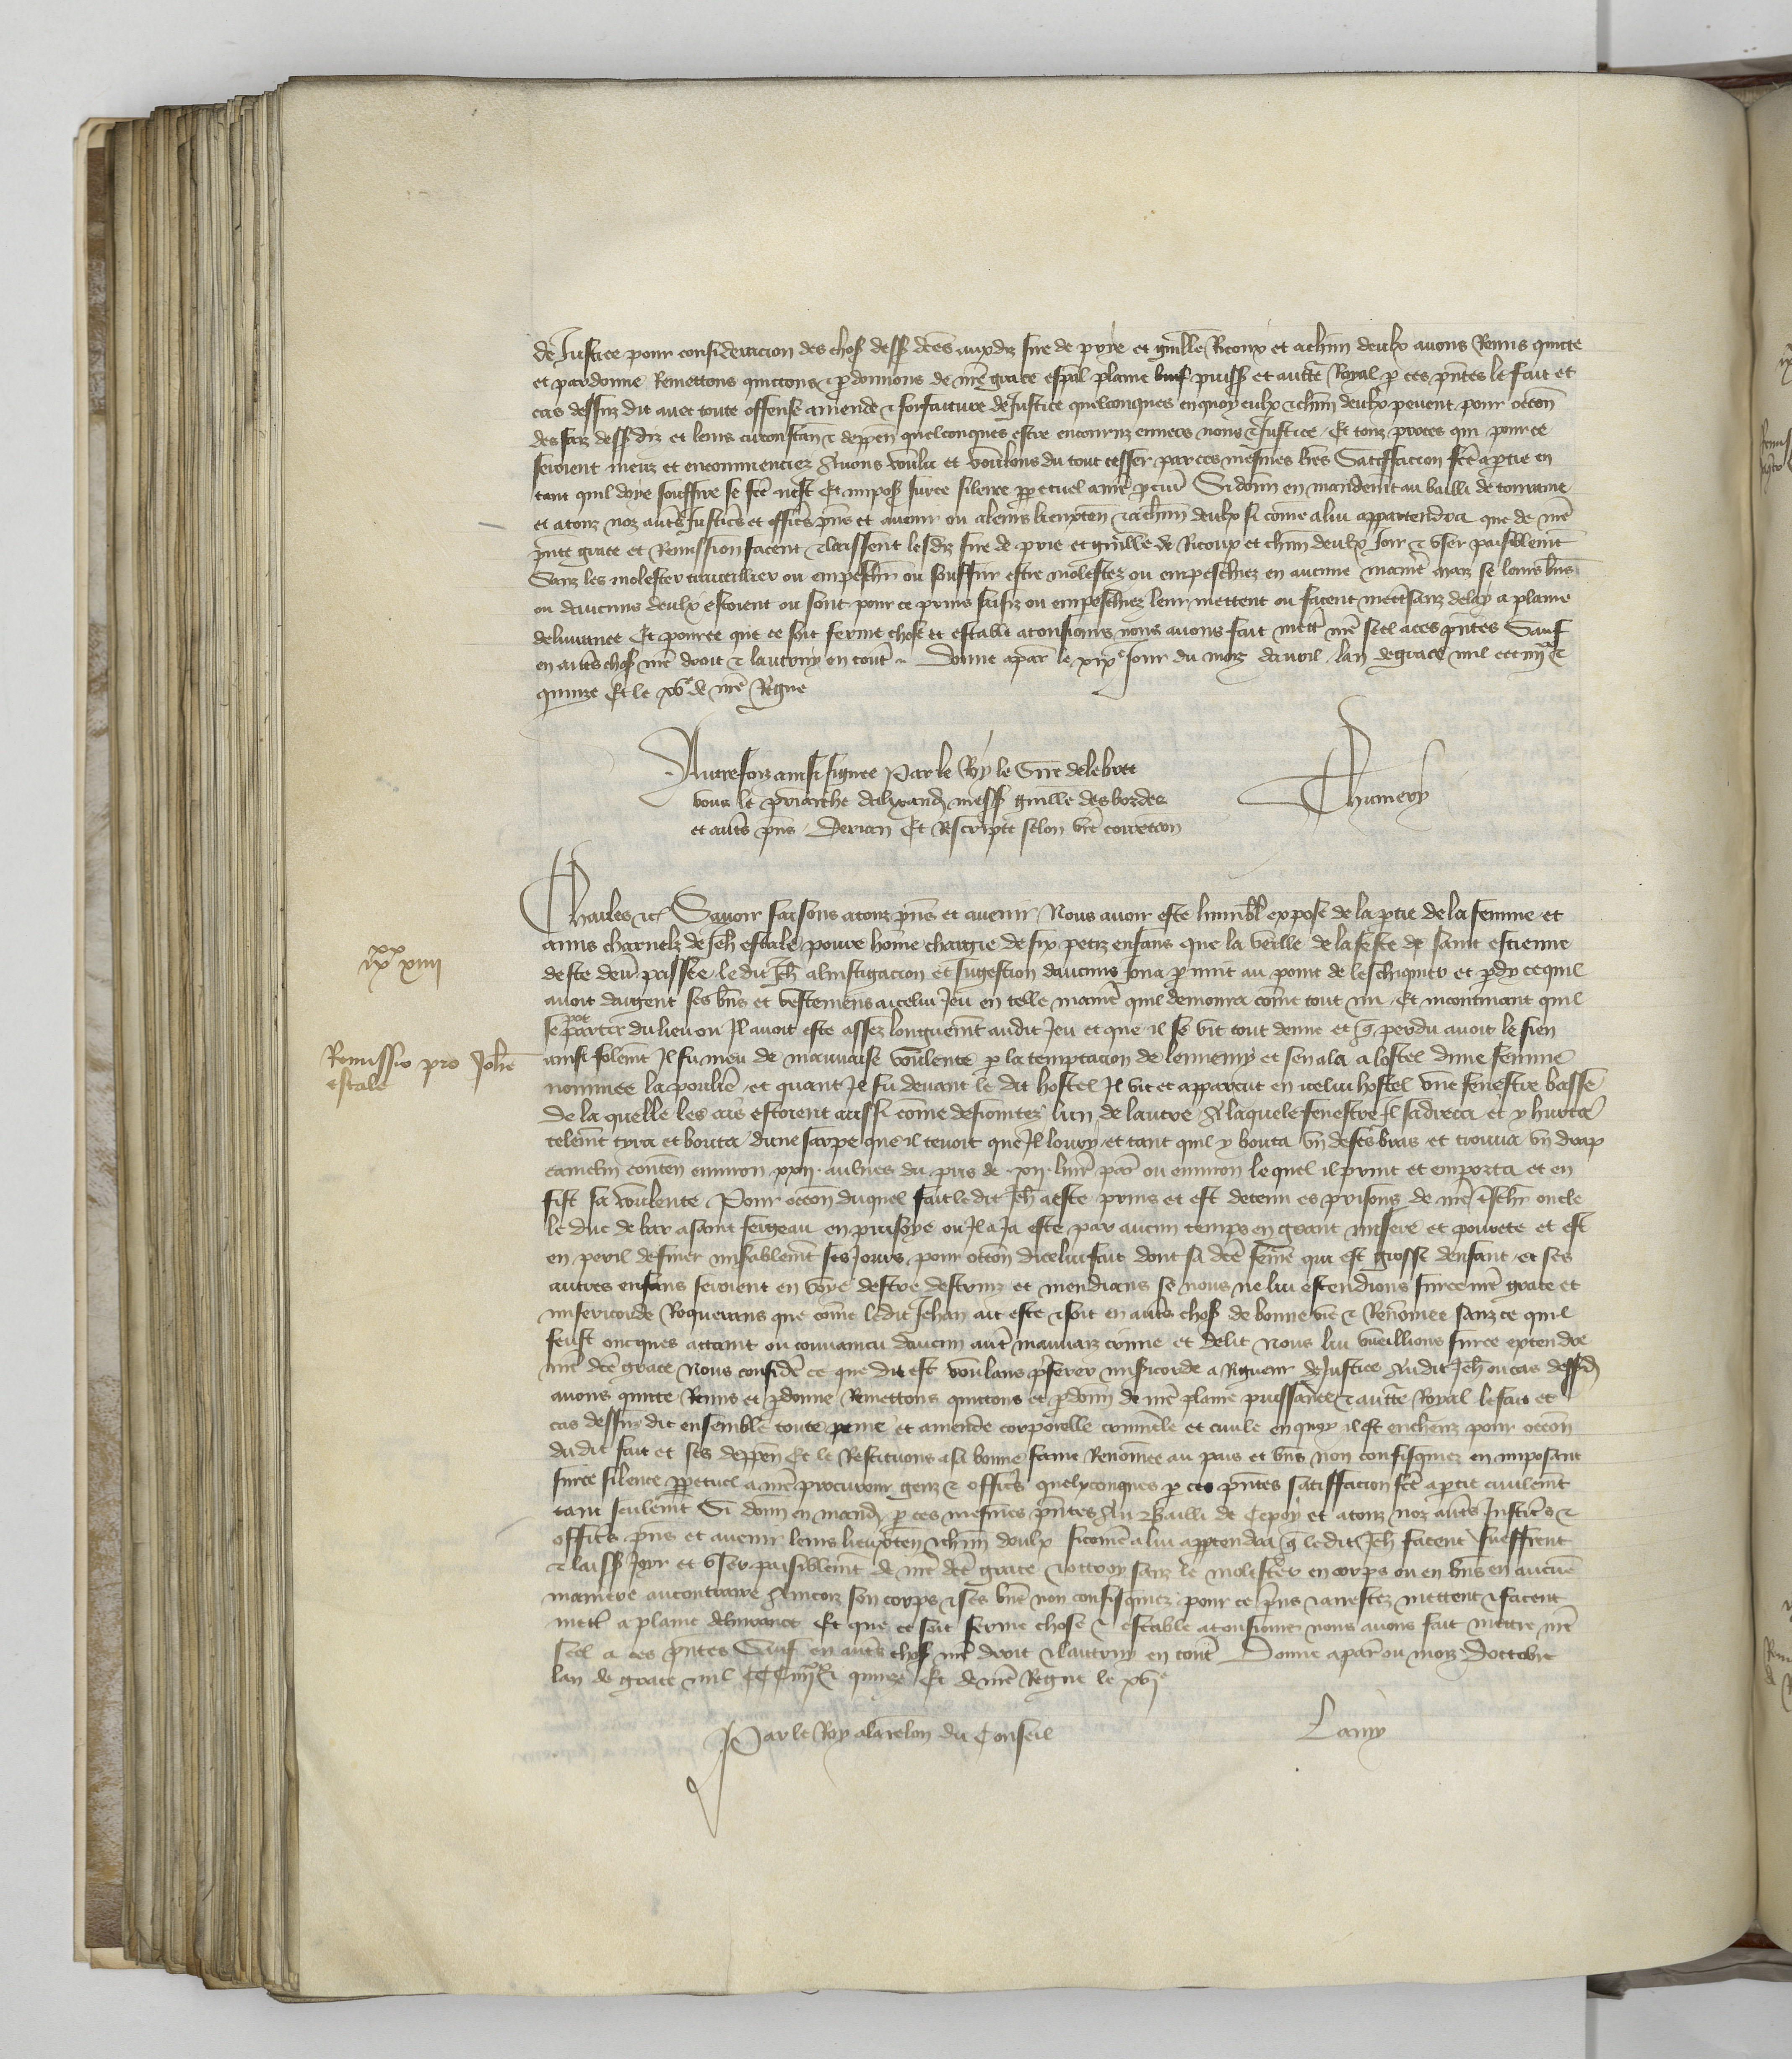 de Justice pour consideracion des chos dess dces auxdiz sire de prie et guille Ricoux et a chun deulx avons Remis quicte
et pardonne Remettons quictons & pdonnons de nre grace espal plaine puiss et aucte Royal p ces pntes le fait et
cas dessus dit avec toute offense amende & forfaiture de Justice quelconques en quoy eulx & chun deulx pevent pour occon
des faiz dess diz et leurs circonstan & deppen quelconques estre encouruz envers nous & Justice Et touz proces qui pour ce
seroient meuz et encommenciez Avons voulu et voulons du tout cesser par ces mesmes lres Satisfacion fce a ptie en
tant quil doye souffire se fce nest Et impos sur ce silence ppetuel a nre pcur Si donn en mandemt au bailli de touraine
et a touz noz autres Justic et offic pns et avenir ou a leurs lieuxten & a chun deulx si come a lui appartendra que de nre
pnte grace et Remission facent & laissent lesdiz sire de prie et guille de Ricoux et chun deulx Joir & user paisiblemt
Sanz les molester travaillier ou empeschr ou souffrir estre molestez ou empeschiez en aucune maniere maiz se leurs bns
ou daucuns deulx estoient ou sont pour ce prins saisiz ou empeschiez leur mettent ou facent mett sanz delay a plaine
delivrance Et pource que ce soit ferme chose et estable a tousiours nous avons fait mett nre seel a ces pntes Sauf
en autres chos nre droit & lautruy en tout Donne a par le xixe Jour du mois davril lan de grace mil ccc iiijxx &
quinze Et le xve de nre Regne
Autresfoiz ainsi signee Par le Roy le Sire delebret
vous le priarche dalixand mess guille des bordes
et autres pns Derian Et Rescripte selon vre correccon
Thumery
Charles &c Savoir faisons a touz pns et avenir Nous avoir este humbl expose de la ptie de la femme et
amis charnelz de Jeh estale povre home chargie de six petiz enfans que la veille de la feste de saint estienne
deste derr passee ledit Jeh a linstigacion et sugestion daucuns Joua p nuit au point de leschiquier et pdy ce quil
avoit dargent ses bns et vestemens a icelui Jeu en telle maniere quil demoura come tout nu Et incontinant quil
se party du lieu ou Il avoit este assez longuemt audit Jeu et que il se vit tout denue et q perdu avoit le sien
ainsi folemt Il fu meu de mauvaise voulente p la temptacion de lennemy et sen ala a lostel dune femme
nommee la pouliere et quant Il fu devant le dit hostel Il vit et apparcut en icelui hostel une fenestre basse
de la quelle les ais estoient aussi come desiointez lun de lautre A laquele fenestre Il sadreca et y hurta
telemt tyra et bouta dune sarpe que il tenoit que Il louvry et tant quil y bouta un de ses bras et trouva un drap
camelin conten environ xxij aulnes du pris de xij livr par ou environ lequel il prinst et emporta et en
fist sa voulente Pour occon duquel fait ledit Jeh a este prins et est detenu es prisons de nre treschr oncle
le duc de bar a saint fergeau en puisoye ou Il a Ja este par aucun temps en grant misere et povrete et est
en peril de finer misablemt ses Jours pour occon dicelui fait dont sa dce feme qui est grosse denfant et ses
autres enfans seroient en voye destre destruiz et mendians se nous ne lui estendions sur ce nre grace et
misericorde Requerans que come ledit Jehan ait este & soit en autres chos de bonne vie & Renomee sanz ce quil
feust oncques attaint ou convaincu daucun autre mauvaiz crime et delit nous lui vueillions sur ce extendre
nre dce grace Nous consider ce que dit est voulans pferer misericorde a Rigueur de Justice Audit Jeh ou cas dessusd
avons quicte Remis et pdonne Remettons quictons et pdonn de nre plaine puissance & aucte Royal le fait et
cas dessus dit ensemble toute peine et amende corporelle criminele et civile en quoy il est encheuz pour occon
dudit fait et ses deppen Et le Restituons a sa bonne fame Renomee au pais et bns non confisquiez en imposant
sur ce silence ppetuel a nre procureur genz & offic quelxconques p ces pntes satisfacion fce a ptie civilemt
tant seulemt Si donn en mand p ces mesmes pntes Au Bailli de Cepoy et a touz noz autres Justic &
offic pns et avenir leurs lieuxten & chun deulx si come a lui apptendra q ledit Jeh facent sueffrent
& laiss Joyr et user paisiblemt de nre dce grace & ottroy sanz le molester en corps ou en bns en aucune
maniere au contraire Aincoiz son corps & ses bns non confisquiez pour ce prins & arrestez mettent & facent
mett a plaine delivrance Et que ce soit ferme chose & estable a tousiours nous avons fait mettre nre
seel a ces pntes Sauf en autres chos nre droit & lautruy en tout Donne a par ou mois Doctobre
lan de grace mil CCC iiijxx & quinze Et de nre Regne le xvje
Par le Roy a la relon du Conseil
Lamy
ixxx xiiii
Remissio pro Johe
estale